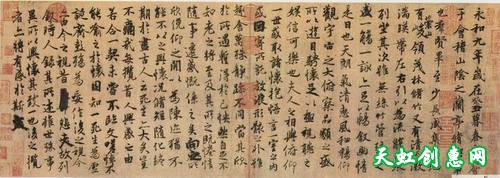 永和九年歲在癸丑暮春
于會稽山陰之蘭亭脩
也群賢畢至少長咸集
有峻領茂林脩竹又有清流
湍暎帶左右引以為流觴
列坐其次雖無絲竹管弦
盛一觴一詠亦足以暢敘幽情
是日也天朗氣清惠風和暢仰
觀宇宙之大俯察品類之盛
所以遊目騁懷足以極視聽之
娛信可樂也夫人之相與俯仰
一世或取諸懷抱悟言一室之內
或因寄所託放浪形骸之外雖
趣舍萬殊靜躁不同當其欣
於所遇蹔得於己怏然自足不
知老之將至及其所之既惓情
隨事遷感慨係之矣向之所
欣俛仰之閒以為陳迹猶不
能不以之興懷況脩短隨化終
期於盡古人云死生亦大矣豈
不痛哉每攬昔人興感之由
若合一契未嘗不臨文嗟悼不
能喻之於懷固知一死生為虛
誕齊彭殤為妄作後之視今
亦由今之視昔悲夫故列
敘時人錄其所述雖世殊事
異所以興懷其致一也後之攬
者亦將有感於斯
天虹创意网